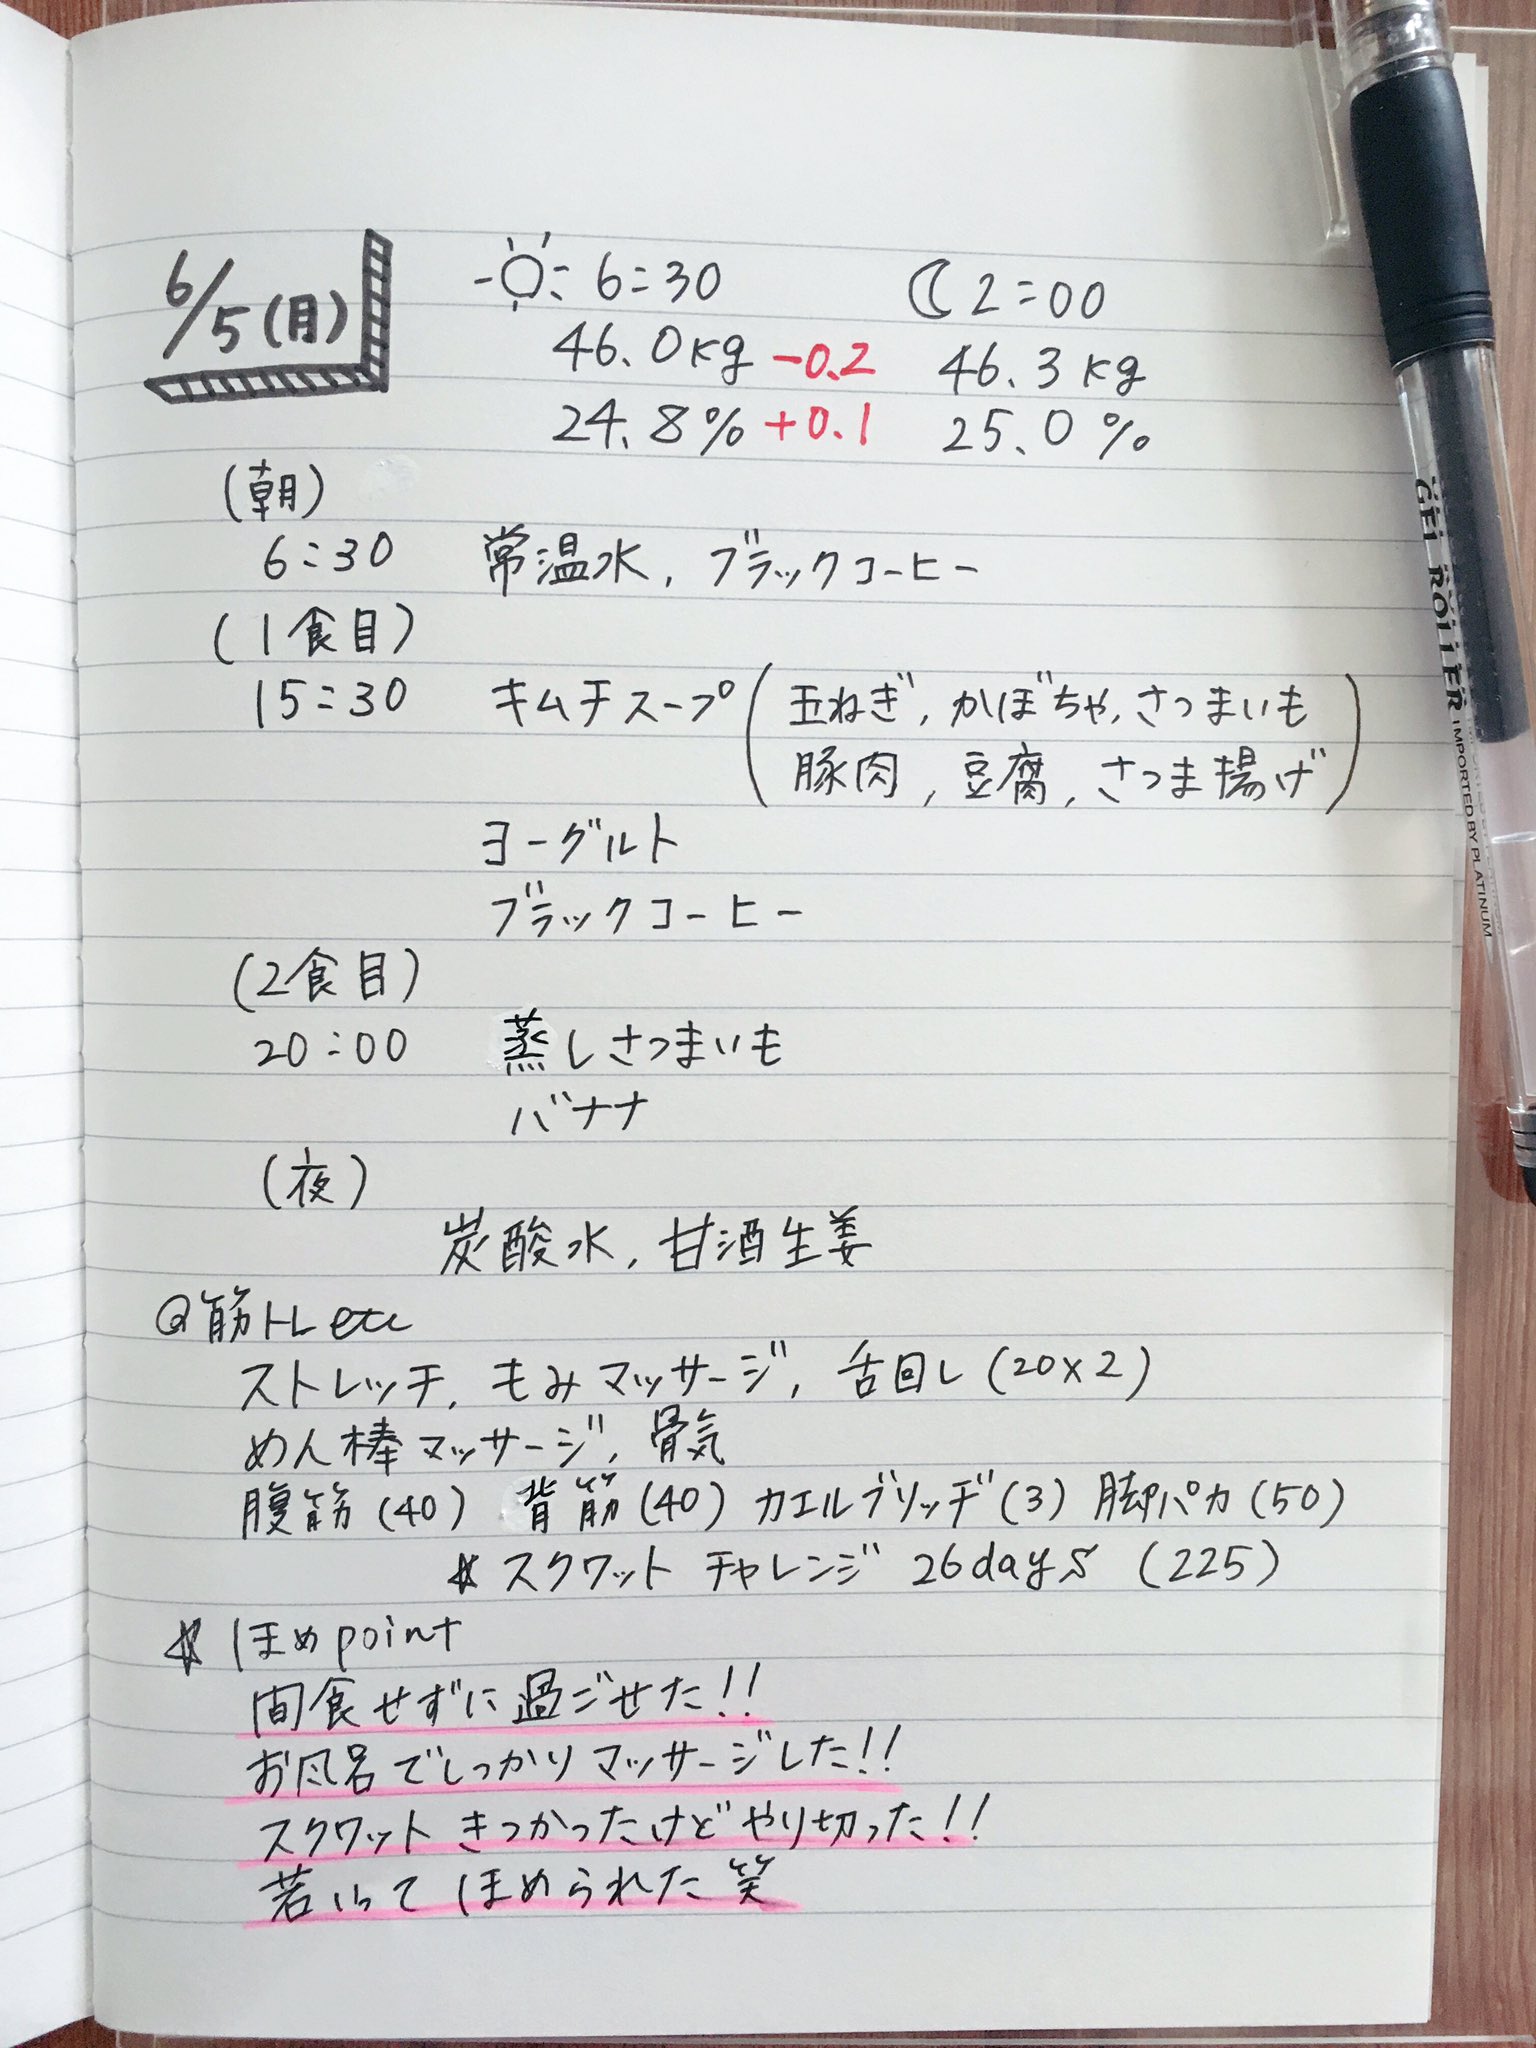 6/5(月)
6:30 2:00
46.0kg -0.2 46.3kg
24.8% +0.1 25.0%
(朝)
6:30 常温水, ブラックコーヒー
(1食目)
15:30 キムチスープ(玉ねぎ, かぼちゃ, さつまいも
豚肉, 豆腐, さつま揚げ)
ヨーグルト
ブラックコーヒー
(2食目)
20:00 蒸しさつまいも
バナナ
(夜)
炭酸水, 甘酒生姜
@筋トレetc
ストレッチ, もみマッサージ, 舌回し(20×2)
めん棒マッサージ, 骨気
腹筋(40) 背筋(40) カエルブリッヂ(3) 脚パカ(50)
☆スクワットチャレンジ 26days (225)
☆ほめpoint
間食せずに過ごせた!!
お風呂でしっかりマッサージした!!
スクワットきつかったけどやり切った!!
若いってほめられた笑
GEl ROllER IMPORTED BY PLATINUM